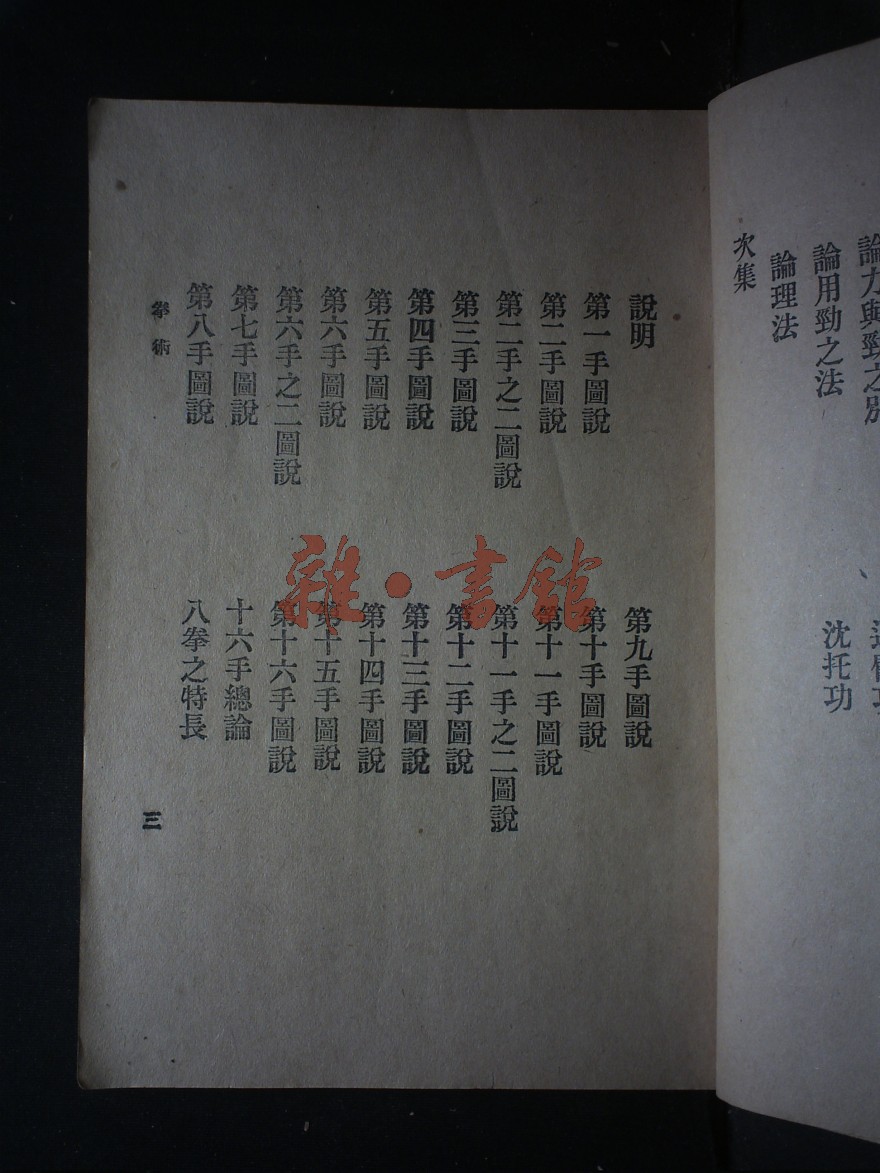 論力與勁之別
論用勁之法
論理法
次集
沈托功
說明
第一手圖說
第二手圖說
第二手之二圖說
第三手圖說
第四手圖說
第五手圖說
第六手圖說
第六手之二圖說
第七手圖說
第八手圖說
第九手圖說
第十手圖說
第十一手圖說
第十一手之二圖說
第十二手圖說
第十三手圖說
第十四手圖說
第十五手圖說
第十六手圖說
十六手總論
八拳之特長
拳術
三
雜·書館